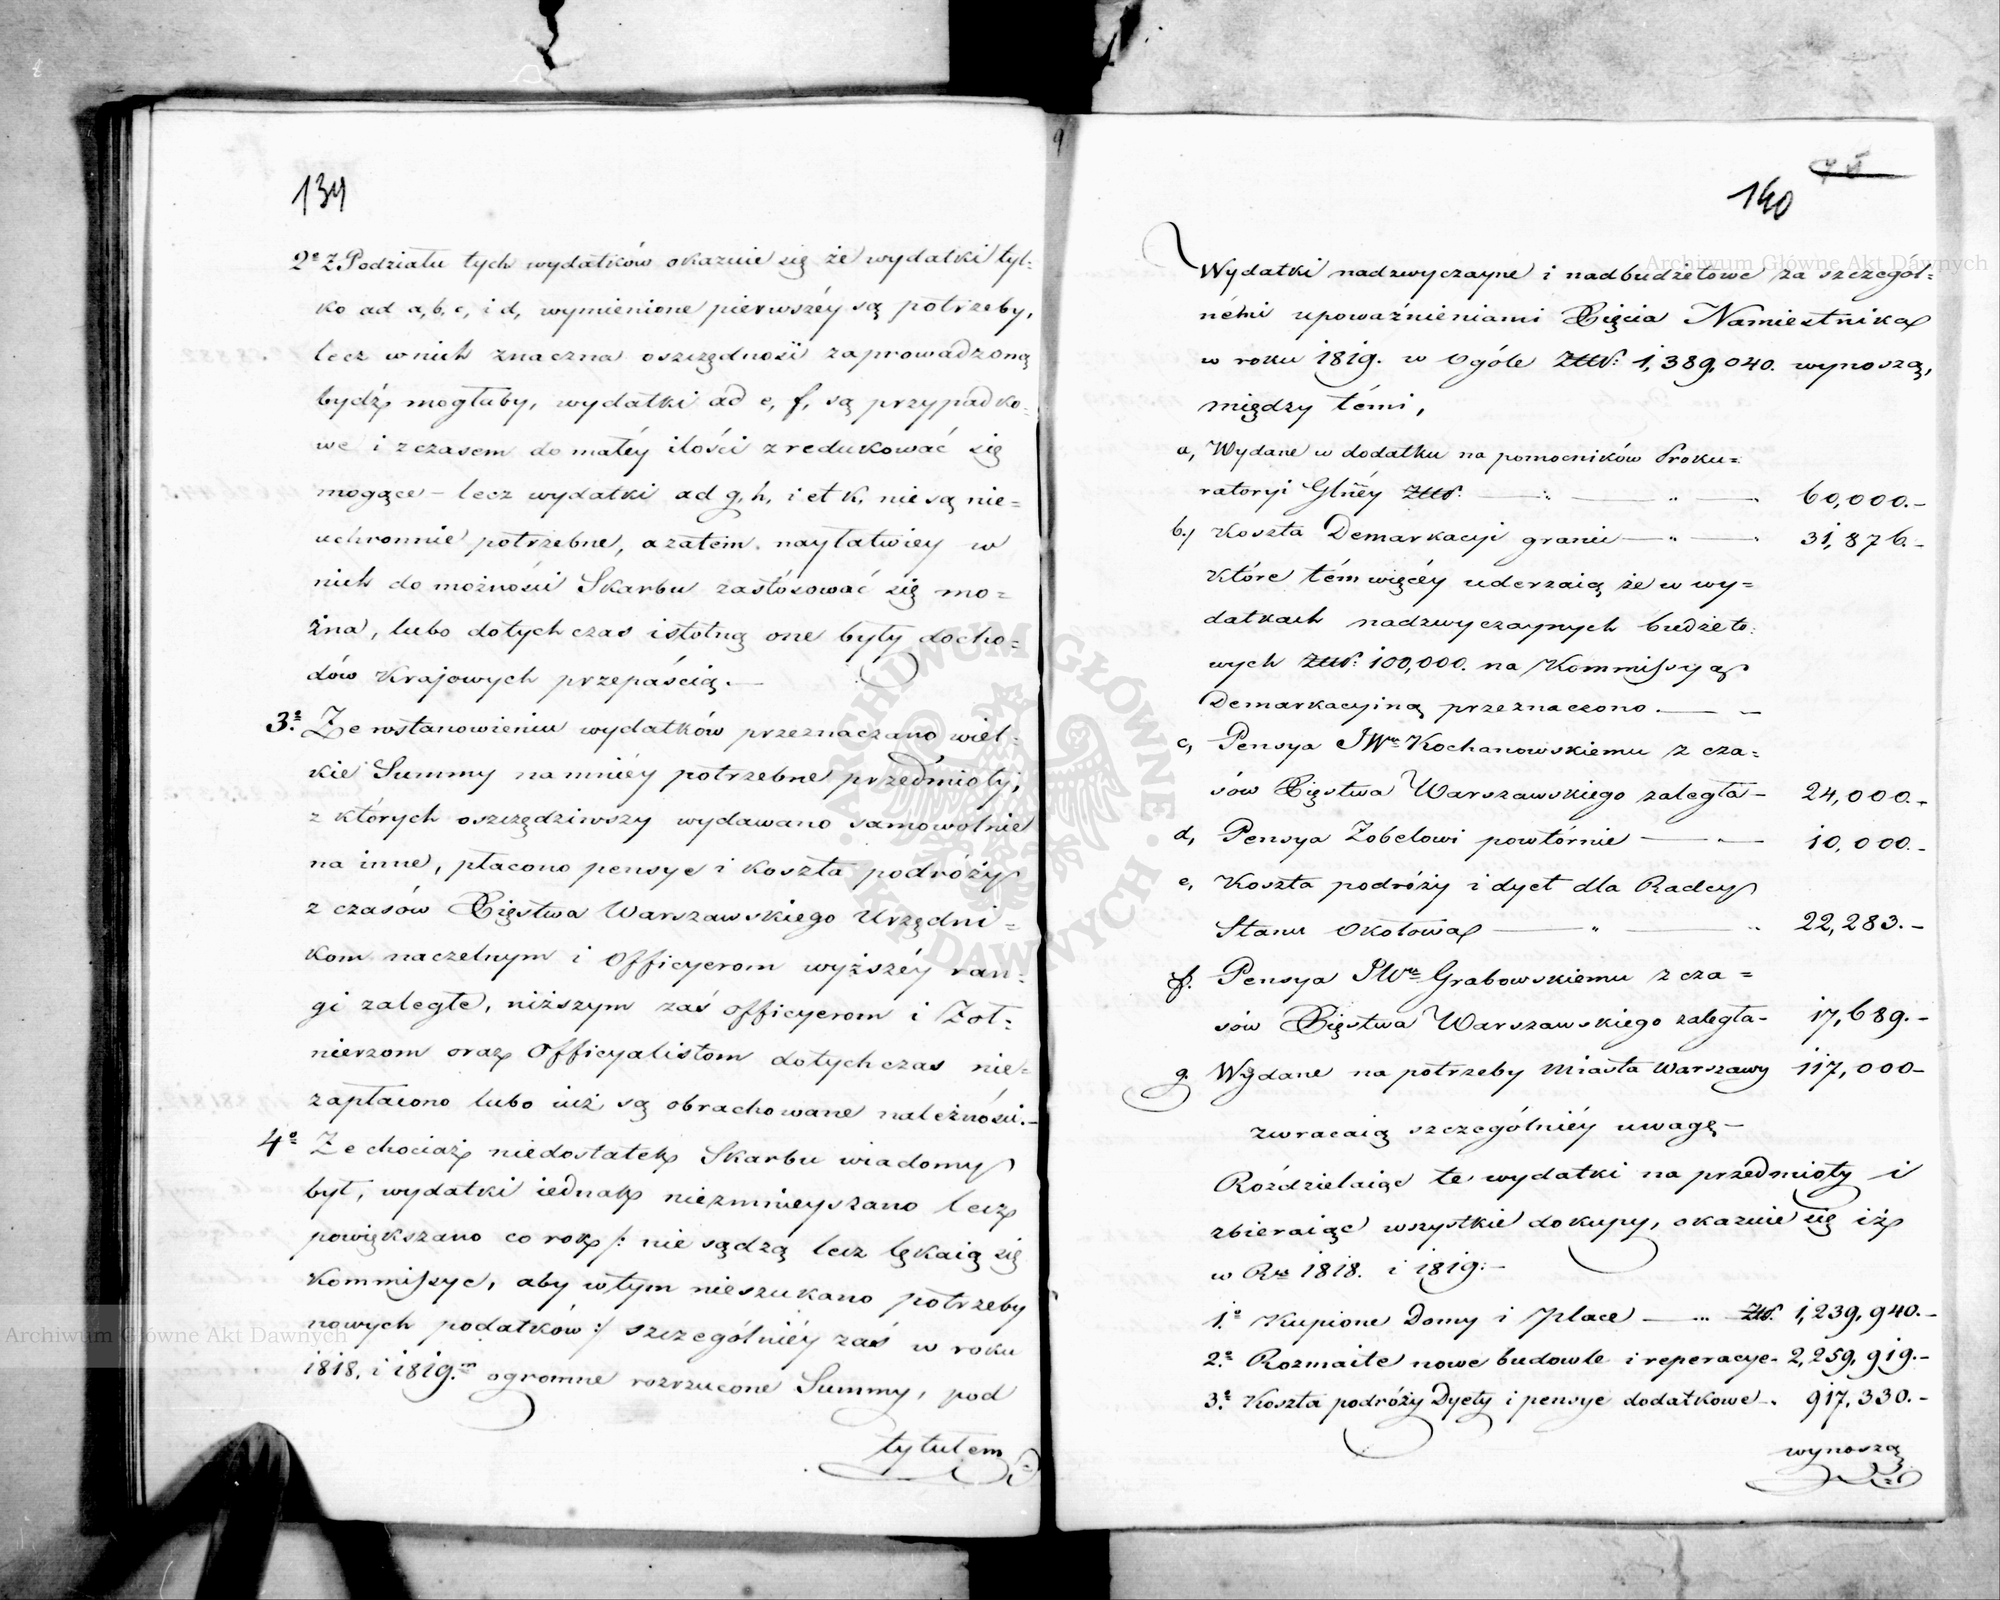 139
2º Z Podziału tych wydatków okazuie się że wydatki tyl-
ko ad a, b, c, i d, wymienione pierwszéy są potrzeby,
lecz w nich znaczna oszczędność zaprowadzoną
bydź mogłaby, wydatki ad e, f, są przypadko-
we i z czasem do małéy ilości zredukować się
mogące – lecz wydatki ad g, h, i et k, nie są nie=
uchronnie potrzebne, a zatem naytatwiey w
nich do możności Skarbu zastósować się mo=
żna, lubo dotychczas istotną one były docho=
dów Krajowych przepaścią. —
3º Ze w stanowieniu wydatków przeznaczano wiel-
kie Summy na mniéy potrzebne przedmioty,
z których oszczędziwszy wydawano samowolnie
na inne, płacono pensye i koszta podróży
z czasów Xięstwa Warszawskiego Urzędni=
kom naczelnym i Officyerom wyższéy ran=
gi zaległe, niższym zaś officyerom i Żoł=
nierzom oraz Officyalistom dotychczas nie=
zapłacono lubo iuż są obrachowane należności. –
4º Ze chociaż niedostatek Skarbu wiadomy
był, wydatki iednak niezmnieyszano lecz
powiększano co rok /: nie sądzą lecz lękaią się
Kommissye, aby w tym nieszukano potrzeby
nowych podatków :/ szczególniéy zaś w roku
1818, i 1819.m ogromne rozrzucone Summy, pod
tytułem
9
78
140
Wydatki nadzwyczayne i nadbudżetowe za szczegól=
némi upoważnieniami Xięcia Namiestnika
w roku 1819. w Ogóle Złł: 1,389,040. wynoszą,
między témi,
a, Wydane w dodatku na pomocników Proku=
ratoryi Glnéy Złł. — " — " — 60,000.–
b, Koszta Demarkacyi granic — " — 31,876.–
które tém więcéy uderzaią że w wy=
datkach nadzwyczaynych budżeto-
wych Złł: 100,000. na Kommissyą
Demarkacyiną przeznaczono. — –
c, Pensya JWu Kochanowskiemu z cza=
sów Xięstwa Warszawskiego zaległa – 24,000.–
d, Pensya Zobelowi powtórnie — " — 10,000.–
e, Koszta podróży i dyet dla Radcy
Stanu Okołowa — " — " 22,283.–
f. Pensya JWu Grabowskiemu z cza=
sów Xięstwa Warszawskiego zaległa – 17,689.–
g Wydane na potrzeby Miasta Warszawy 117,000–
zwracaią szczególniéy uwagę –
Rozdzielaiąc te wydatki na przedmioty i
zbieraiąc wszystkie do kupy, okazuie się iż
w Rku 1818. i 1819. –
1.º Kupione Domy i Place — " Złł. 1,239,940.–
2.º Rozmaite nowe budowle i reperacye – 2,259,919.–
3.º Koszta podróży Dyety i pensye dodatkowe – 917,330.–
wynoszą
Archiwum Główne Akt Dawnych
Archiwum Główne Akt Dawnych
ARCHIWUM GŁÓWNE · AKT DAWNYCH ·